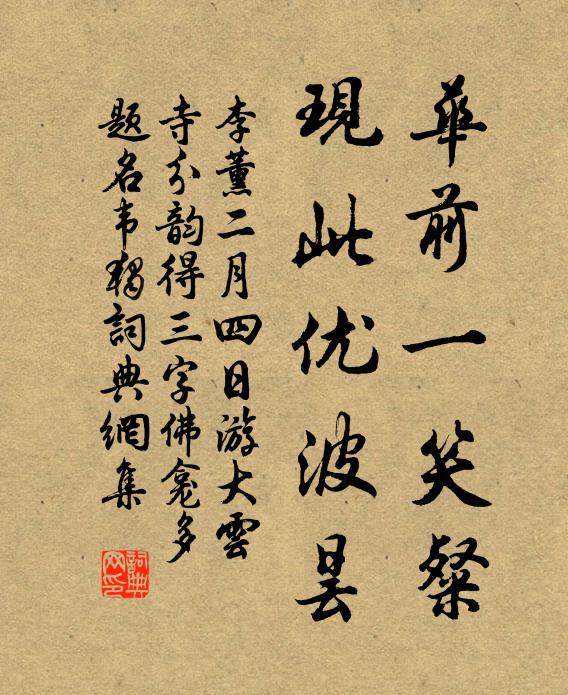 華前一笑粲
現此优波昙
李薰二月四日游大雲
寺分韵得三字佛龛多
題名韦猲詞典網集
詞典网印